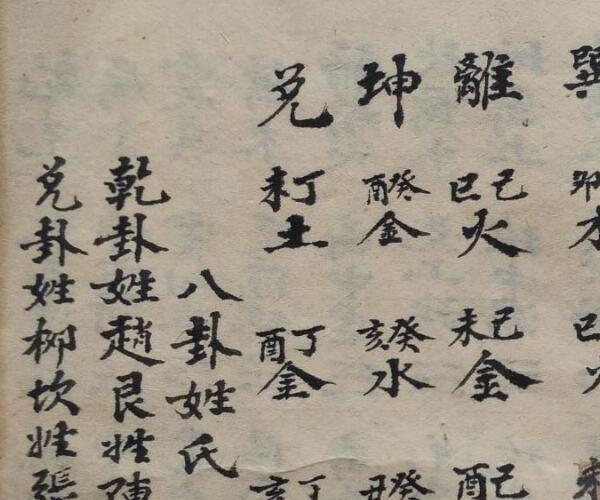 巽卯巳
離己巳火己未金己酉
坤癸酉金癸亥水癸丑
兌丁未土丁酉金丁亥
八卦姓氏
乾卦姓趙艮姓陳
兌卦姓柳坎姓張